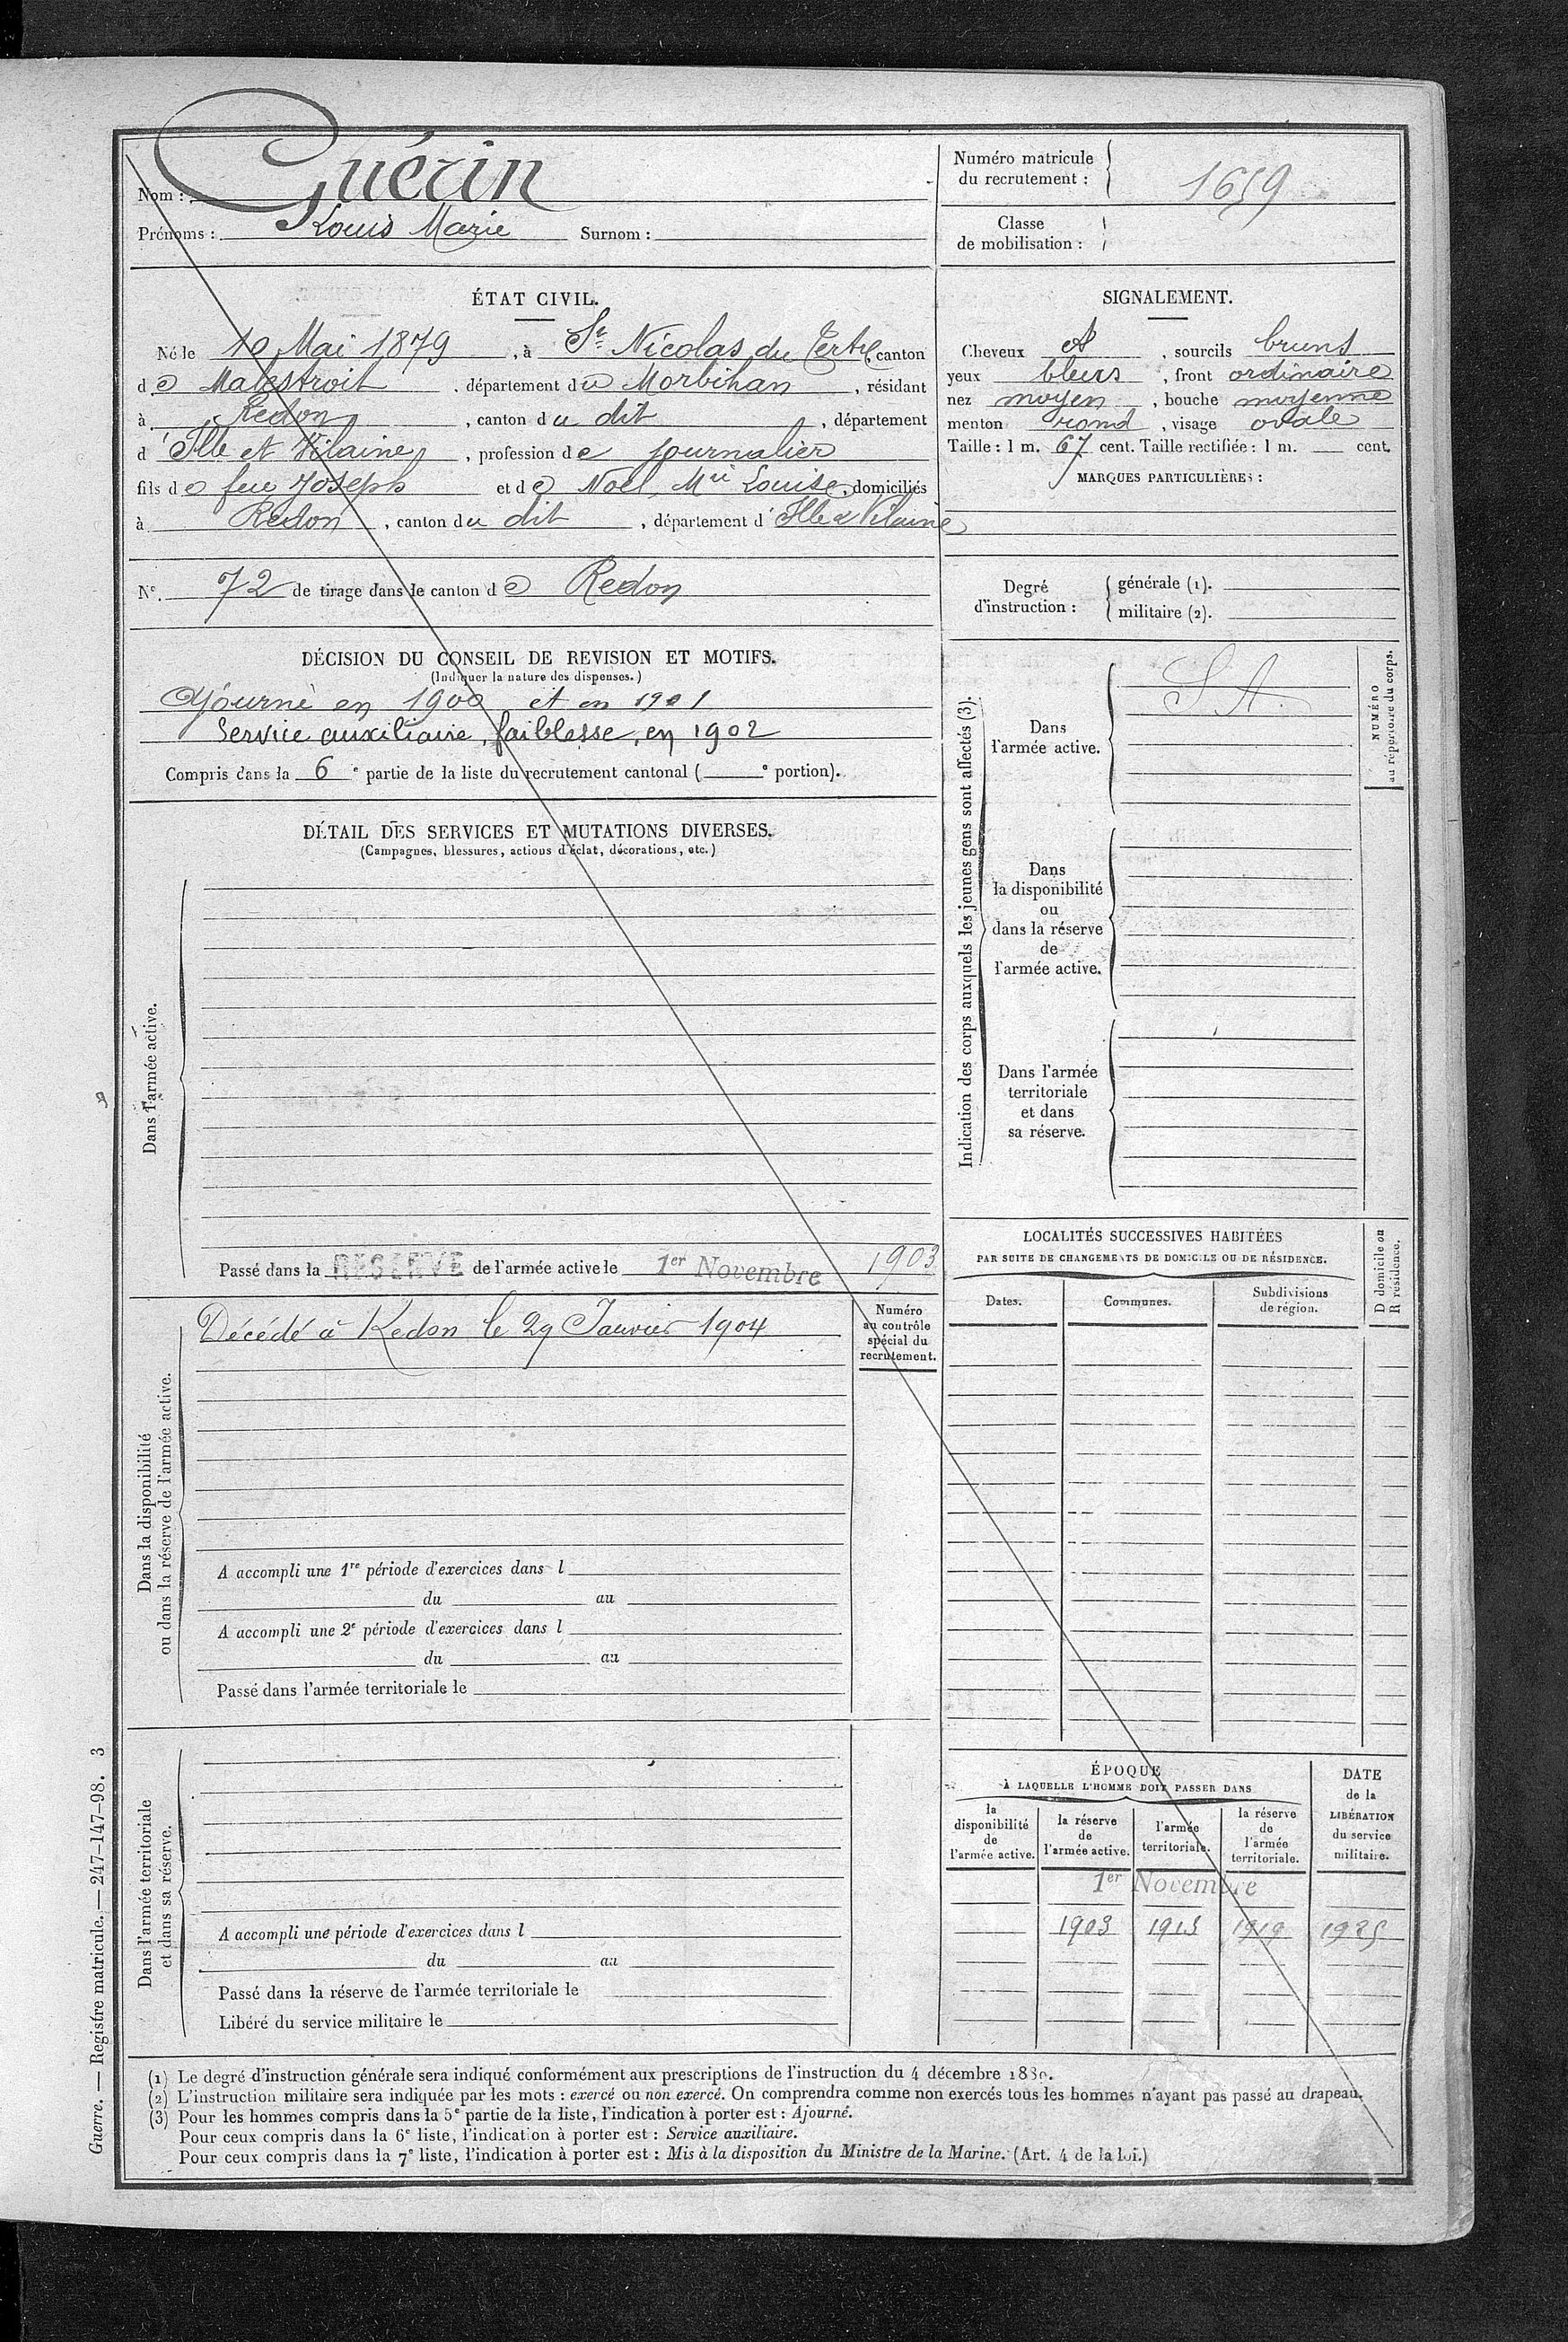 Nom : Guérin
Prénoms : Louis Marie Surnom :
Numéro matricule du recrutement : 1659
Classe de mobilisation :
ÉTAT CIVIL.
Né le 10 Mai 1879, à St Nicolas du Tertre, canton
de Malestroit, département du Morbihan, résidant
à Redon, canton du dit, département
d'Ille et Vilaine, profession de journalier
fils de feu Joseph et de Noël, Mie Louise, domiciliés
à Redon, canton du dit, département d'Ille & Vilaine
N° 72 de tirage dans le canton de Redon
SIGNALEMENT.
Cheveux et, sourcils bruns
yeux bleus, front ordinaire
nez moyen, bouche moyenne
menton rond, visage ovale
Taille : 1 m. 67 cent. Taille rectifiée : 1 m. cent.
MARQUES PARTICULIÈRES :
Degré d'instruction :
générale (1).
militaire (2).
DÉCISION DU CONSEIL DE REVISION ET MOTIFS.
(Indiquer la nature des dispenses.)
Ajourné en 1900 et en 1901
Service auxiliaire, faiblesse, en 1902
Compris dans la 6e partie de la liste du recrutement cantonal ( e portion).
DÉTAIL DES SERVICES ET MUTATIONS DIVERSES.
(Campagnes, blessures, actions d'éclat, décorations, etc.)
Dans l'armée active.
Passé dans la RÉSERVE de l'armée active le 1er Novembre 1903
Indication des corps auxquels les jeunes gens sont affectés (3).
Dans l'armée active.
S A.
NUMÉRO au répertoire du corps.
Dans
la disponibilité
ou
dans la réserve
de
l'armée active.
Dans l'armée
territoriale
et dans
sa réserve.
Dans la disponibilité
ou dans la réserve de l'armée active.
Décédé à Redon le 29 Janvier 1904
Numéro
au contrôle
spécial du
recrutement.
A accompli une 1re période d'exercices dans l
du au
A accompli une 2e période d'exercices dans l
du au
Passé dans l'armée territoriale le
LOCALITÉS SUCCESSIVES HABITÉES
PAR SUITE DE CHANGEMENTS DE DOMICILE OU DE RÉSIDENCE.
Dates. Communes. Subdivisions de région.
D domicile ou
R résidence.
Dans l'armée territoriale
et dans sa réserve.
A accompli une période d'exercices dans l
du au
Passé dans la réserve de l'armée territoriale le
Libéré du service militaire le
ÉPOQUE
À LAQUELLE L'HOMME DOIT PASSER DANS
la disponibilité de l'armée active.
la réserve de l'armée active.
l'armée territoriale.
la réserve de l'armée territoriale.
DATE de la LIBÉRATION du service militaire.
1er Novembre
1903 1913 1919 1925
(1) Le degré d'instruction générale sera indiqué conformément aux prescriptions de l'instruction du 4 décembre 1889.
(2) L'instruction militaire sera indiquée par les mots : exercé ou non exercé. On comprendra comme non exercés tous les hommes n'ayant pas passé au drapeau.
(3) Pour les hommes compris dans la 5e partie de la liste, l'indication à porter est : Ajourné.
Pour ceux compris dans la 6e liste, l'indication à porter est : Service auxiliaire.
Pour ceux compris dans la 7e liste, l'indication à porter est : Mis à la disposition du Ministre de la Marine. (Art. 4 de la loi.)
Guerre. — Registre matricule. — 247-147-98. 3